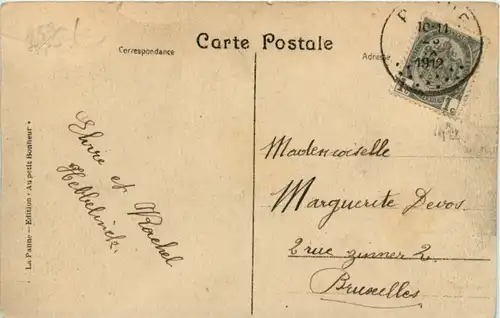 Carte Postale
Correspondance
Adresse
10-11
1912
1c
et Rachel
Hebbelinck.
Mademoiselle
Marguerite Devos
2 rue zinner 2
Bruxelles
La Panne – Edition • Au petit Bonheur •